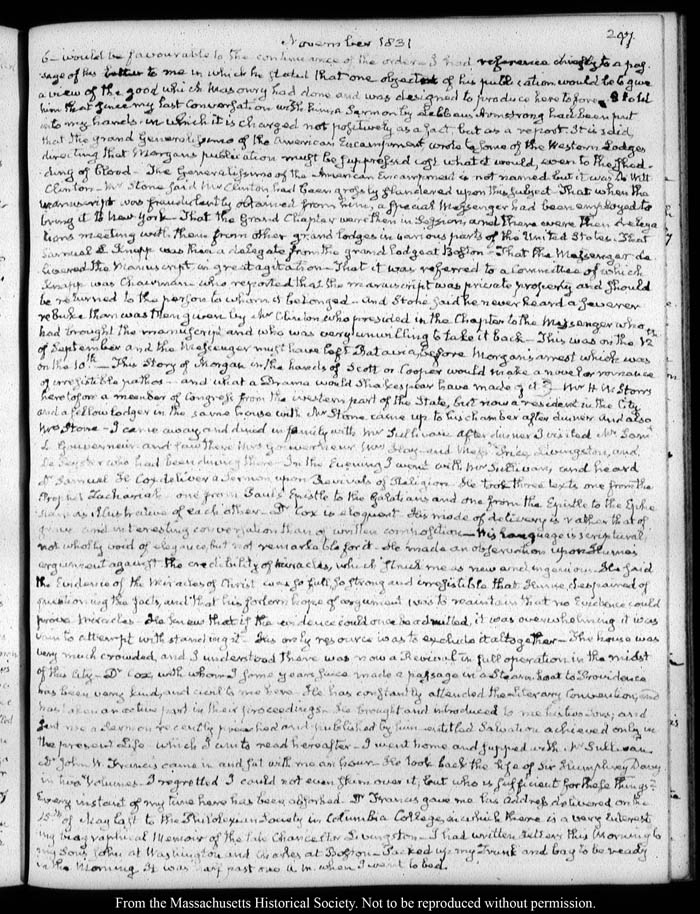 November 1831
247
6 – would be favourable to the continuance of the order – I had reference chiefly to a pas-
sage of his letter to me in which he stated that one object of his publication would be to give
a view of the good which Masonry had done and was designed to produce heretofore – I told
him that since my last Conversation with him, a Sermon by Lebbeus Armstrong had been put
into my hands in which it is charged not positively as a fact, but as a report. It is said
that the grand Generalissimo of the American Encampment wrote to some of the Western Lodges
directing that Morgan's publication must be suppressed cost what it would, even to the shed-
ding of blood – The Generalissimo of the American Encampment is not named but it was De Witt
Clinton – Mr Stone said Mr Clinton had been grossly slandered upon this subject – That when the
manuscript was fraudulently obtained from him, a special Messenger had been employed to
bring it to New York – That the Grand Chapter were then in Session, and there were then delega-
tions meeting with them from other grand lodges in various parts of the United States – That
Samuel L. Knapp was then a delegate from the grand Lodge at Boston – That the Messenger de-
livered the Manuscript in great agitation – That it was referred to a Committee of which
Knapp was Chairman who reported that the manuscript was private property and should
be returned to the person to whom it belonged – and Stone said he never heard a severer
rebuke than was then given by Mr Clinton who presided in the Chapter to the Messenger who
had brought the manuscript and who was very unwilling to take it back – This was on the 12th
of September and the Messenger must have left Batavia, before Morgan's arrest which was
on the 10th – This Story of Morgan in the hands of Scott or Cooper would make a novel or romance
of irresistible pathos – and what a Drama would Shakespear have made of it? – Mr H. R. Storrs
heretofore a member of Congress from the western part of the State, but now a resident in the City
and a fellow lodger in the same house with Mr Stone came up to his chamber after dinner and also
Mrs Stone – I came away and dined in family with Mr Sullivan. After dinner I visited Mr Saml
L. Gouverneur and saw there Mrs Gouverneur Mrs Hay and Messrs Price, Livingston, and
who had been dining there – In the Evening I went with Mr Sullivan, and heard
Dr Samuel H. Cox deliver a Sermon upon Revivals of Religion – He took three texts one from the
Prophet Zachariah – one from Paul's Epistle to the Galatians and one from the Epistle to the Ephe-
sians as illustrative of each other – Dr Cox is eloquent – His mode of delivery is rather that of
and interesting conversation than of written composition – His Language is scriptural,
not wholly void of elegance, but not remarkable for it – He made an observation upon Hume's
argument against the credibility of miracles, which struck me as new and ingenious – He said
the Evidence of the Miracles of Christ was so full, so strong and irresistible that Hume, despaired of
questioning the facts, and that his forlorn hope of argument was to maintain that no Evidence could
prove Miracles – He knew that if the evidence could once be admitted, it was overwhelming it was
vain to attempt withstanding it – His only resource was to exclude it altogether – The house was
very much crowded, and I understood there was now a Revival in full operation in the midst
of this City – Dr Cox with whom I some years since made a passage in a Steam boat to Providence
has been very kind and civil to me here – He has constantly attended the Literary Convention, and
has taken an active part in their proceedings – He brought and introduced to me his two Sons; and
sent me a Sermon recently preached and published by him entitled Salvation achieved only in
the present Life – which I am to read hereafter – I went home and supped with Mr Sullivan
Dr John W. Francis came in and sat with me an hour – He took back the life of Sir Humphrey Davy
in two Volumes – I regretted I could not even skim over it; but who is sufficient for these things –
Every instant of my time here has been absorbed – Dr Francis gave me his Address delivered on the
15th of May last to the Philolexian Society in Columbia College, in which there is a very interest-
ing biographical Memoir of the late Chancellor Livingston – I had written letters this Morning to
my Sons John at Washington and Charles at Boston – Packed up my Trunk and bag to be ready
in the Morning. It was half past one A.M. when I went to bed.
From the Massachusetts Historical Society. Not to be reproduced without permission.